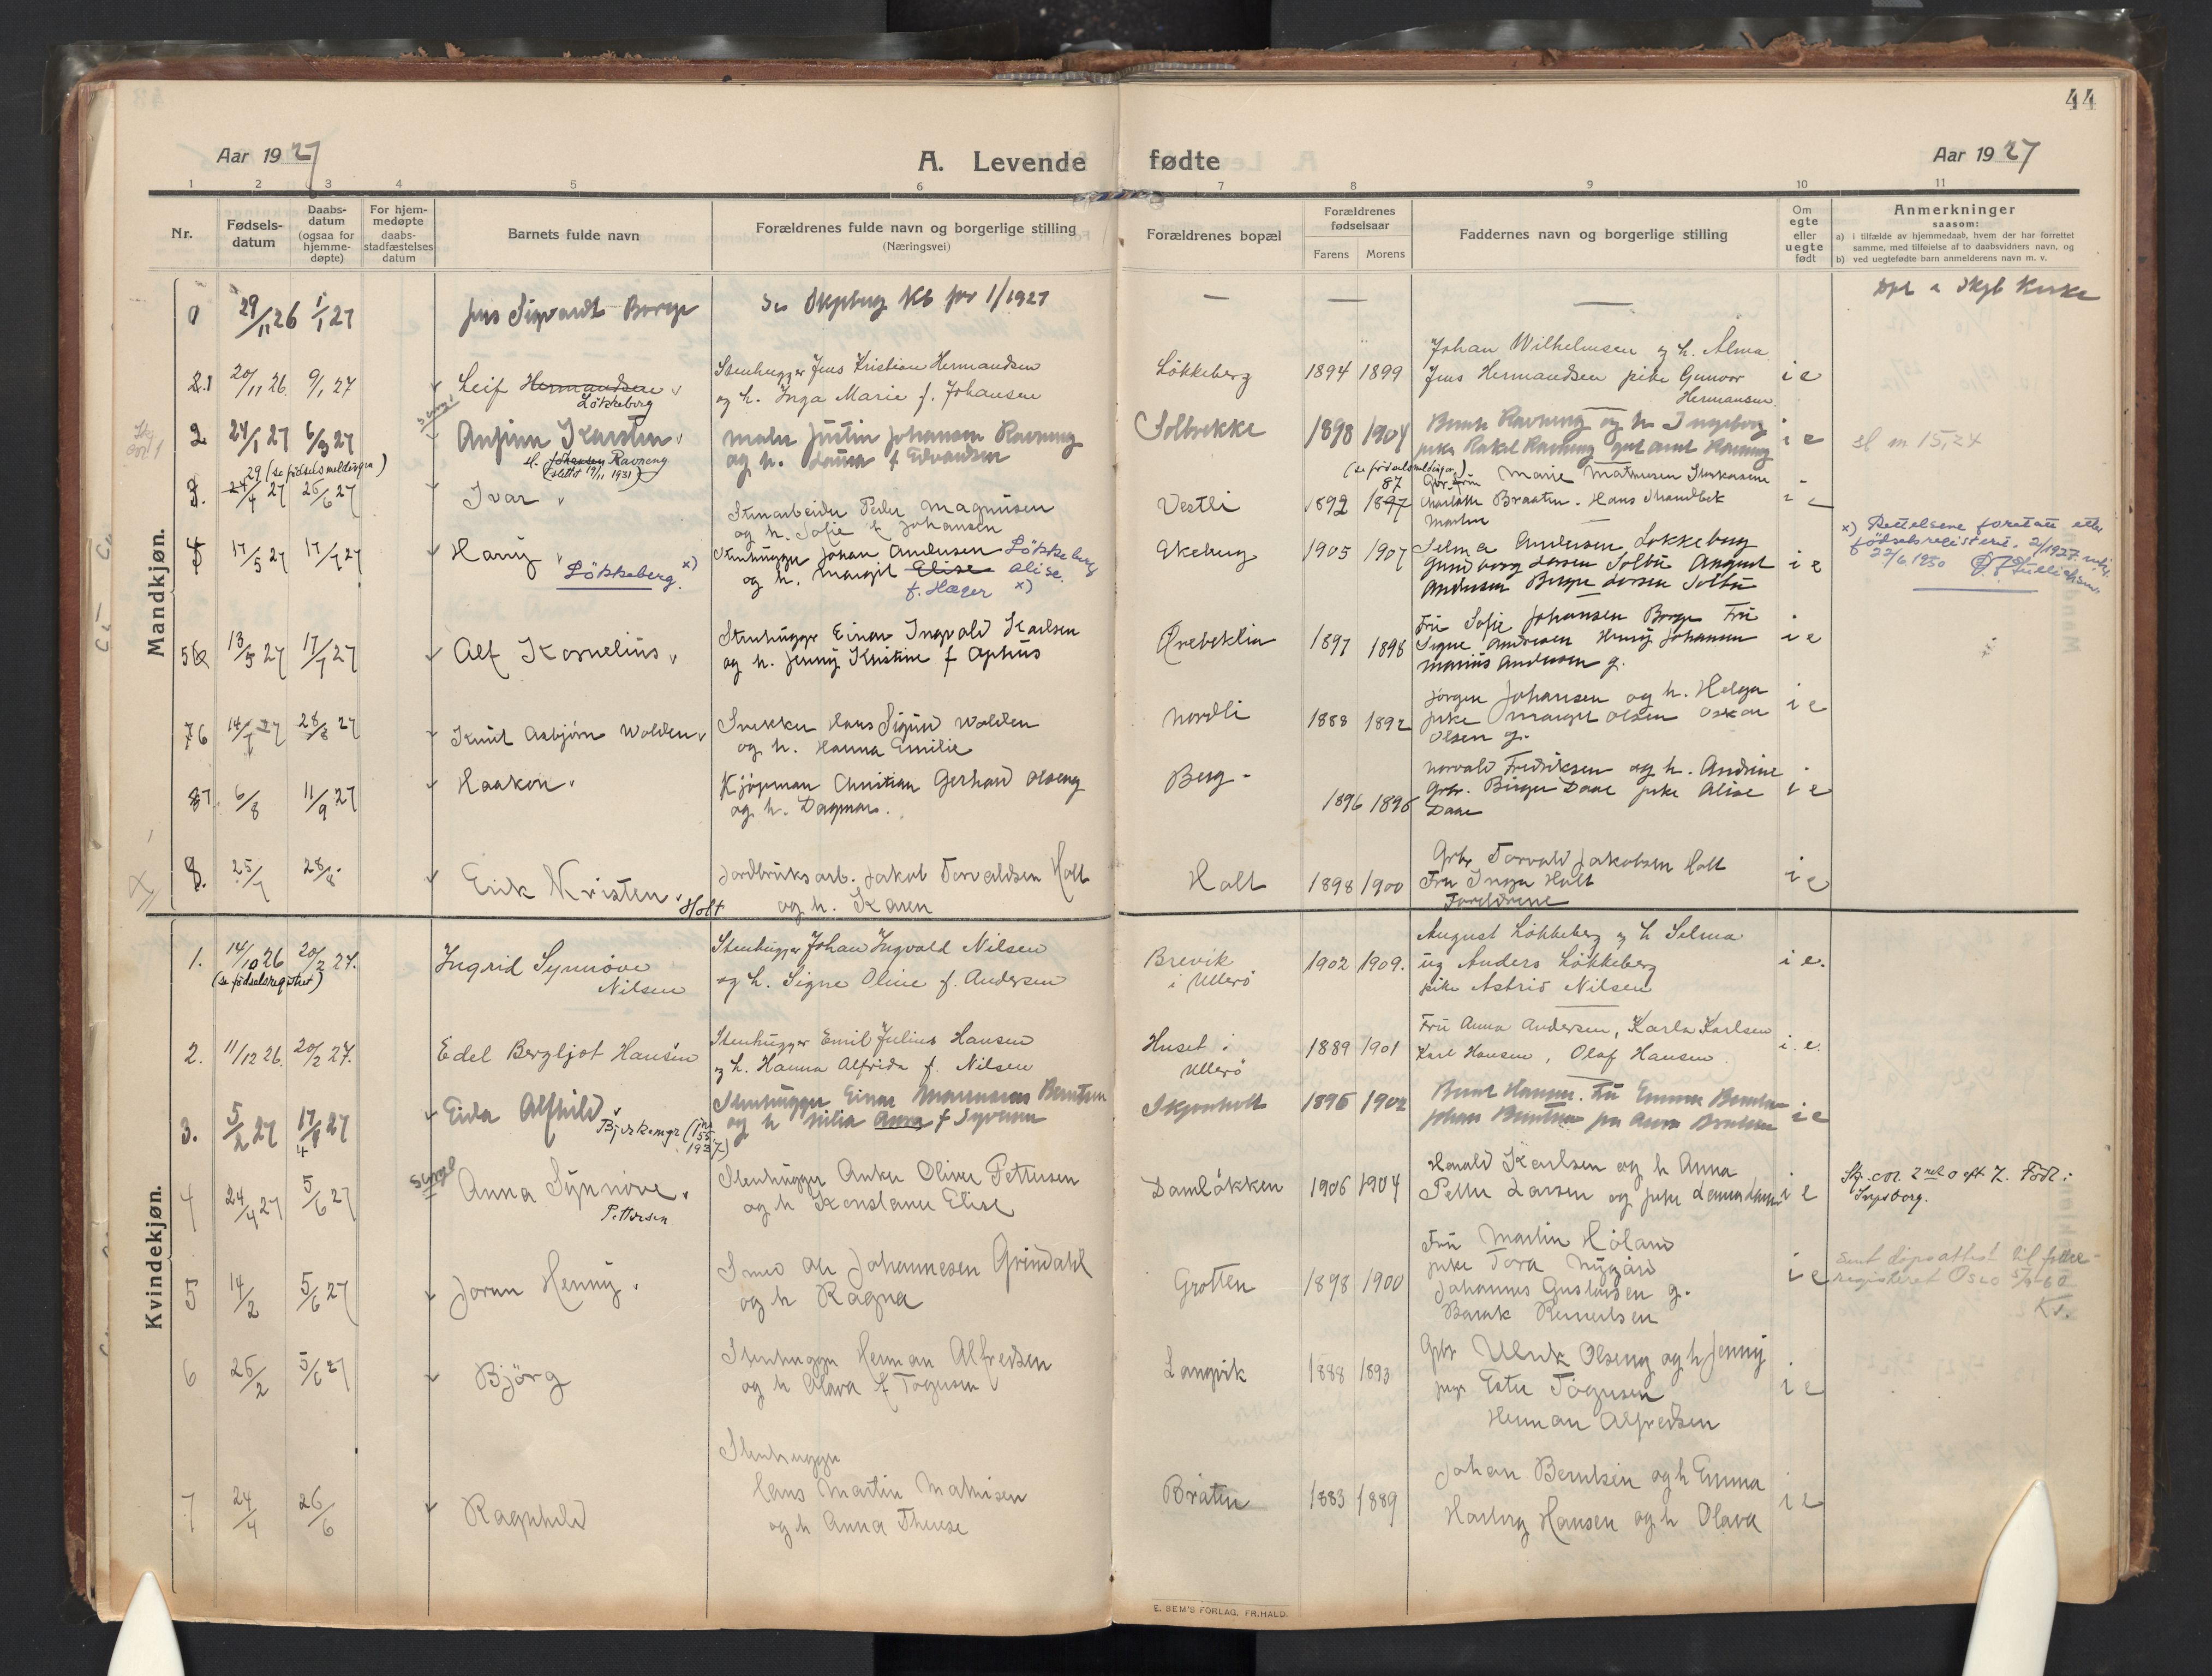 44
Aar 1927
A. Levende fødte
Aar 1927
1 2 3 4 5 6 7 8 9 10 11
Nr.
Fødsels-
datum
Daabs-
datum
(ogsaa for
hjemme-
døpte)
For hjem-
medøpte
daabs-
stadfæstelses
datum
Barnets fulde navn
Forældrenes fulde navn og borgerlige stilling
(Næringsvei)
Forældrenes bopæl
Forældrenes
fødselsaar
Farens Morens
Faddernes navn og borgerlige stilling
Om
egte
eller
uegte
født
Anmerkninger
saasom:
a) i tilfælde av hjemmedaab, hvem der har forrettet
samme, med tilføielse af to daabsvidners navn, og
b) ved uegtefødte barn anmelderens navn m. v.
Mandkjøn.
0 29/11 26 1/1 27 Jens Sigvardt Borge
1/1927
Kirke
1 20/11 26. 9/1 27 Leif Hermandsen
Løkkeberg
Stenhugger Jens Kristian Hermandsen
og h. Inga Marie f. Johansen
Løkkeberg 1894 1899
Johan Wilhelmsen og h. Alma
Jens Hermandsen pike Gunvor
Hermansen
i e
2 24/1 27 6/3 27 Karsten
Johansen Ravneng
(slettet 19/11 1931)
Maler Justin Johansen Ravneng
og h. f Edvardsen
Solbrekke 1898 1904
Bernt Ravneng og h Ingeborg
pike Rakel Ravneng
i e
29 (se fødselsmeldingen)
3. 24/4 27 26/6 27 Ivar
Stenarbeider Peder Magnusen
og h. Sofie f Johansen
Vestli 1892 1897
(se fødselsmeldingen)
87
Marie Mathisen
Charlotte Braaten. Hans Strandbek
17/5 27 17/7 27 Harry
Løkkeberg. x)
Stenhugger Johan Andersen Løkkeberg
og h. Margit Elise Alise.
f. Hæger x)
Ekeberg 1905 1907
Selma Andersen Løkkeberg
Gundborg Larsen Solbu August
Andersen Birger Larsen Solbu
i e
x) Rettelsene foretatt etter
fødselsregisteret. 2/1927
22/6 1950
5 13/5 27 17/7 27 Alf Kornelius
Stenhugger Einar Ingvald Karlsen
og h. Jenny Kristine f Ophus
1897 1898
Fru Sofie Johansen Borge Fru
Signe Andresen Henry Johansen
Marius Andersen g.
i e
6 14/7 27 28/8 27 Knut Asbjørn Wolden
Snekker Hans Sigurd Wolden
og h. Hanna Emilie
Nordli 1888 1892
Jørgen Johansen og h. Helga
pike Margit Olsen Oskar
Olsen g.
i e
7 6/8 11/9 27 Haakon
Kjøpman Christian Gerhard Olseng
og h. Dagmar.
Berg 1896 1896
Norvald Fredriksen og h. Andrine
Grbr. Birger Daae pike Alise
Daae
i e
8. 25/7 28/8 Erik Kristen Holt
Jordbruksarb. Jakob Torvaldsen Holt
og h. Karen
Holt 1898 1900
Grbr Torvald Jakobsen Holt
Fru Inga Holt
Foreldrene
i e
Kvindekjøn.
1. 14/10 26 20/2 27.
(se fødselsregistret)
Ingrid Synnøve
Nilsen
Stenhugger Johan Ingvald Nilsen
og h. Signe Oline f. Andersen
Brevik
i Ullerø
1902 1909.
August Løkkeberg og h Selma
ug Anders Løkkeberg
pike Astrid Nilsen
i e.
2. 11/12 26. 20/2 27. Edel Bergljot Hansen
Stenhugger Emil Julius Hansen
og h. Hanna Alfrida f. Nilsen
Huset i
Ullerø
1889 1901
Fru Anna Andersen, Karla Karlsen
Karl Hansen, Olaf Hansen
i. e.
3. 5/2 27 17/4 27 Eida Alfhild
Stenhugger Einar Berntsen
og h Milia Anna f Syversen
Skjønholt 1896 1902
Bernt Hansen. Fru Emma Berntsen
Johan Berntsen
i e
4 24/4 27 5/6 27 Anna Synnøve
Pettersen
Stenhugger Anker Oliver Pettersen
og h Konstanse Elise
Damløkken 1906 1904
Harald Karlsen og h Anna
Petter Larsen og pike
i e
Født i
Ingeborg.
5 14/2 5/6 27 Jorun Henny.
Smed Ole Johannesen Grindahl
og h Ragna
Grotten 1898 1900
Fru Martin Høland
pike Tora Nygård
Johannes Gustavsen g.
Barak
i e
Sent dåpsattest til folke-
registeret Oslo
6 26/2 5/6 27 Bjørg
Stenhugger Herman Alfredsen
og h Olava f Torgersen
Langvik 1888 1893
Grbr Ulrik Olseng og h Jenny
pige Ester Torgersen
Herman Alfredsen
i e
7 24/4 26/6 Ragnhild
Stenhugger
Hans Martin Mathisen
og h Anna Therese
Bråten 1883 1889
Johan Berntsen og h Emma
Hansen og h Olava
i e
E. SEM'S FORLAG, FR.HALD.